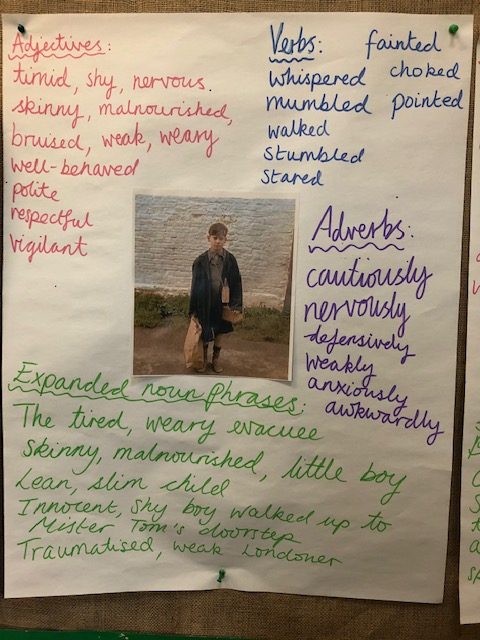 Adjectives:
timid, shy, nervous.
skinny, malnourished,
bruised, weak, weary
well-behaved
polite
respectful
vigilant
Verbs: fainted
whispered choked
mumbled pointed
walked
stumbled
stared
Adverbs:
cautiously
nervously
defensively
weakly
anxiously
awkwardly
Expanded noun phrases:
The tired, weary evacuee
Skinny, malnourished, little boy
Lean, slim child
Innocent, shy boy walked up to
Mister Tom's doorstep
Traumatised, weak Londoner